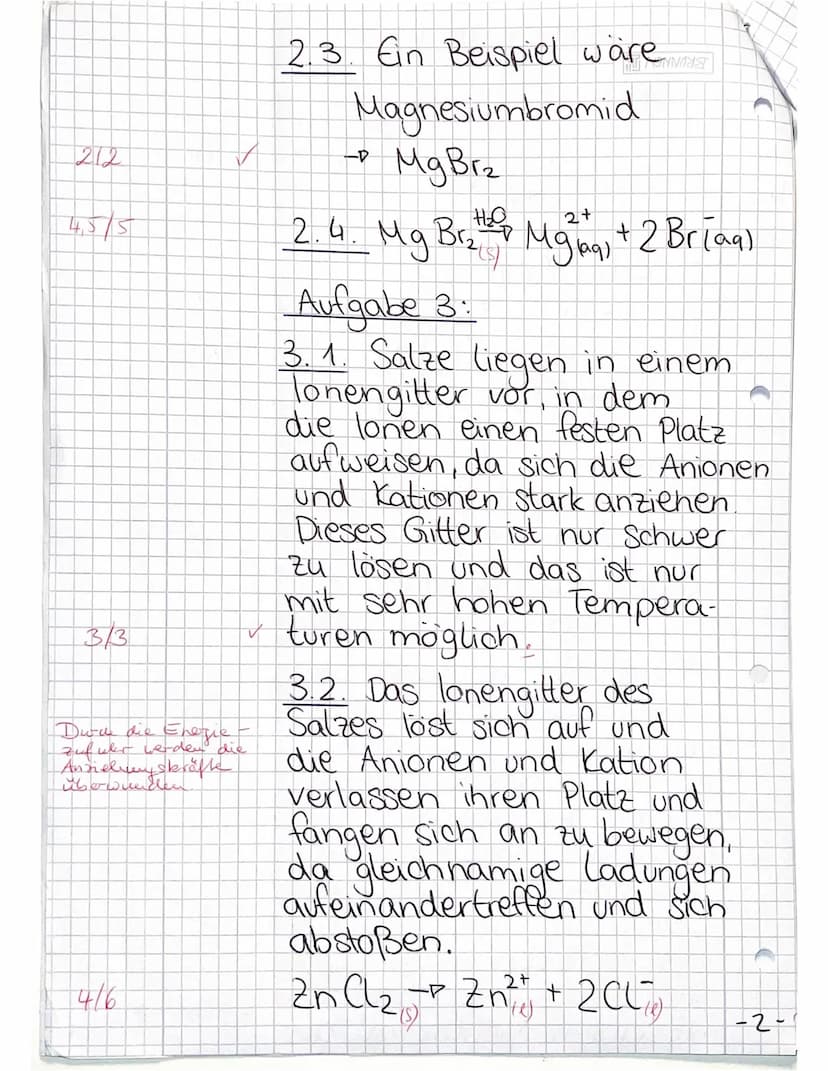 2.3. Ein Beispiel wäre
BRUNNEN
Magnesiumbromid
2/2 ✓ → MgBr₂
4,5/5 2.4. MgBr₂(s) H₂O→ Mg²⁺(aq) + 2Br⁻(aq)
Aufgabe 3:
3.1. Salze liegen in einem
Ionengitter vor, in dem
die Ionen einen festen Platz
aufweisen, da sich die Anionen
und Kationen stark anziehen.
Dieses Gitter ist nur schwer
zu lösen und das ist nur
mit sehr hohen Tempera-
3/3 ✓ turen möglich.
3.2. Das Ionengitter des
Salzes löst sich auf und
die Anionen und Kation
verlassen ihren Platz und
fangen sich an zu bewegen,
da gleichnamige Ladungen
aufeinandertreffen und sich
abstoßen.
Durch die Energie-
zufuhr werden die
Anziehungskräfte
überwunden
4/6 ZnCl₂(s) → Zn²⁺(l) + 2Cl⁻(l)
-2-